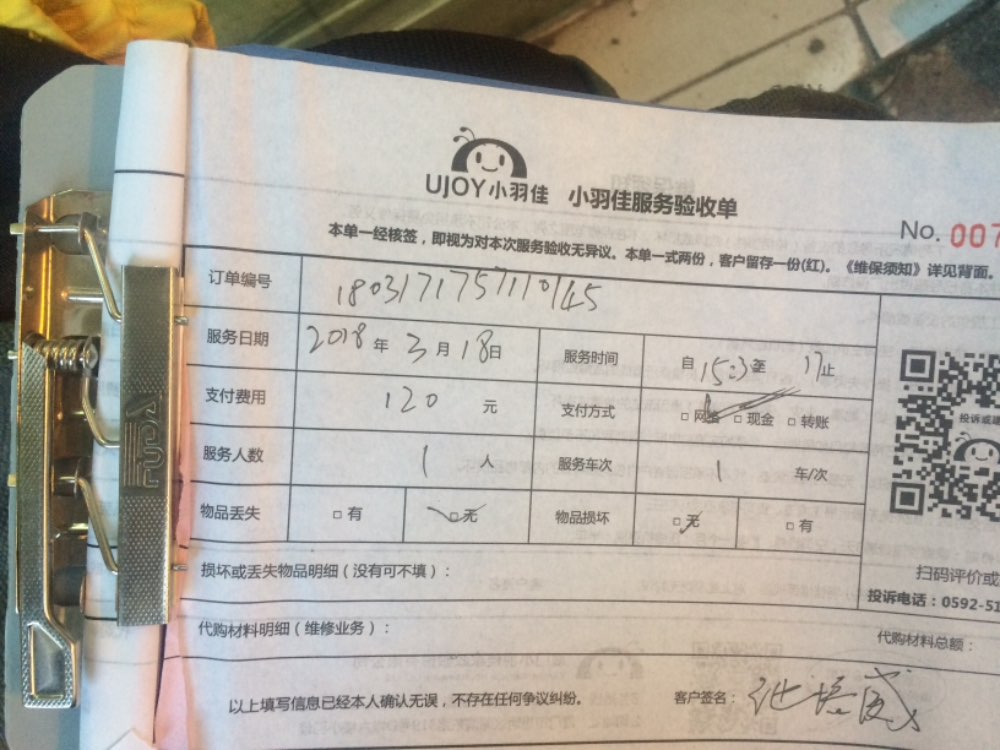 UJOY小羽佳 小羽佳服务验收单
No. 007
本单一经核签，即视为对本次服务验收无异议。本单一式两份，客户留存一份(红)。《维保须知》详见背面。
订单编号 1803171757110145
服务日期 2018年3月18日 服务时间 自15:3至17止
支付费用 120元 支付方式 □网络 □现金 □转账
服务人数 1人 服务车次 1 车/次
物品丢失 □有 □无 物品损坏 □无 □有
投诉或
扫码评价或
损坏或丢失物品明细（没有可不填）：
投诉电话：0592-51
代购材料明细（维修业务）： 代购材料总额：
以上填写信息已经本人确认无误，不存在任何争议纠纷。 客户签名：